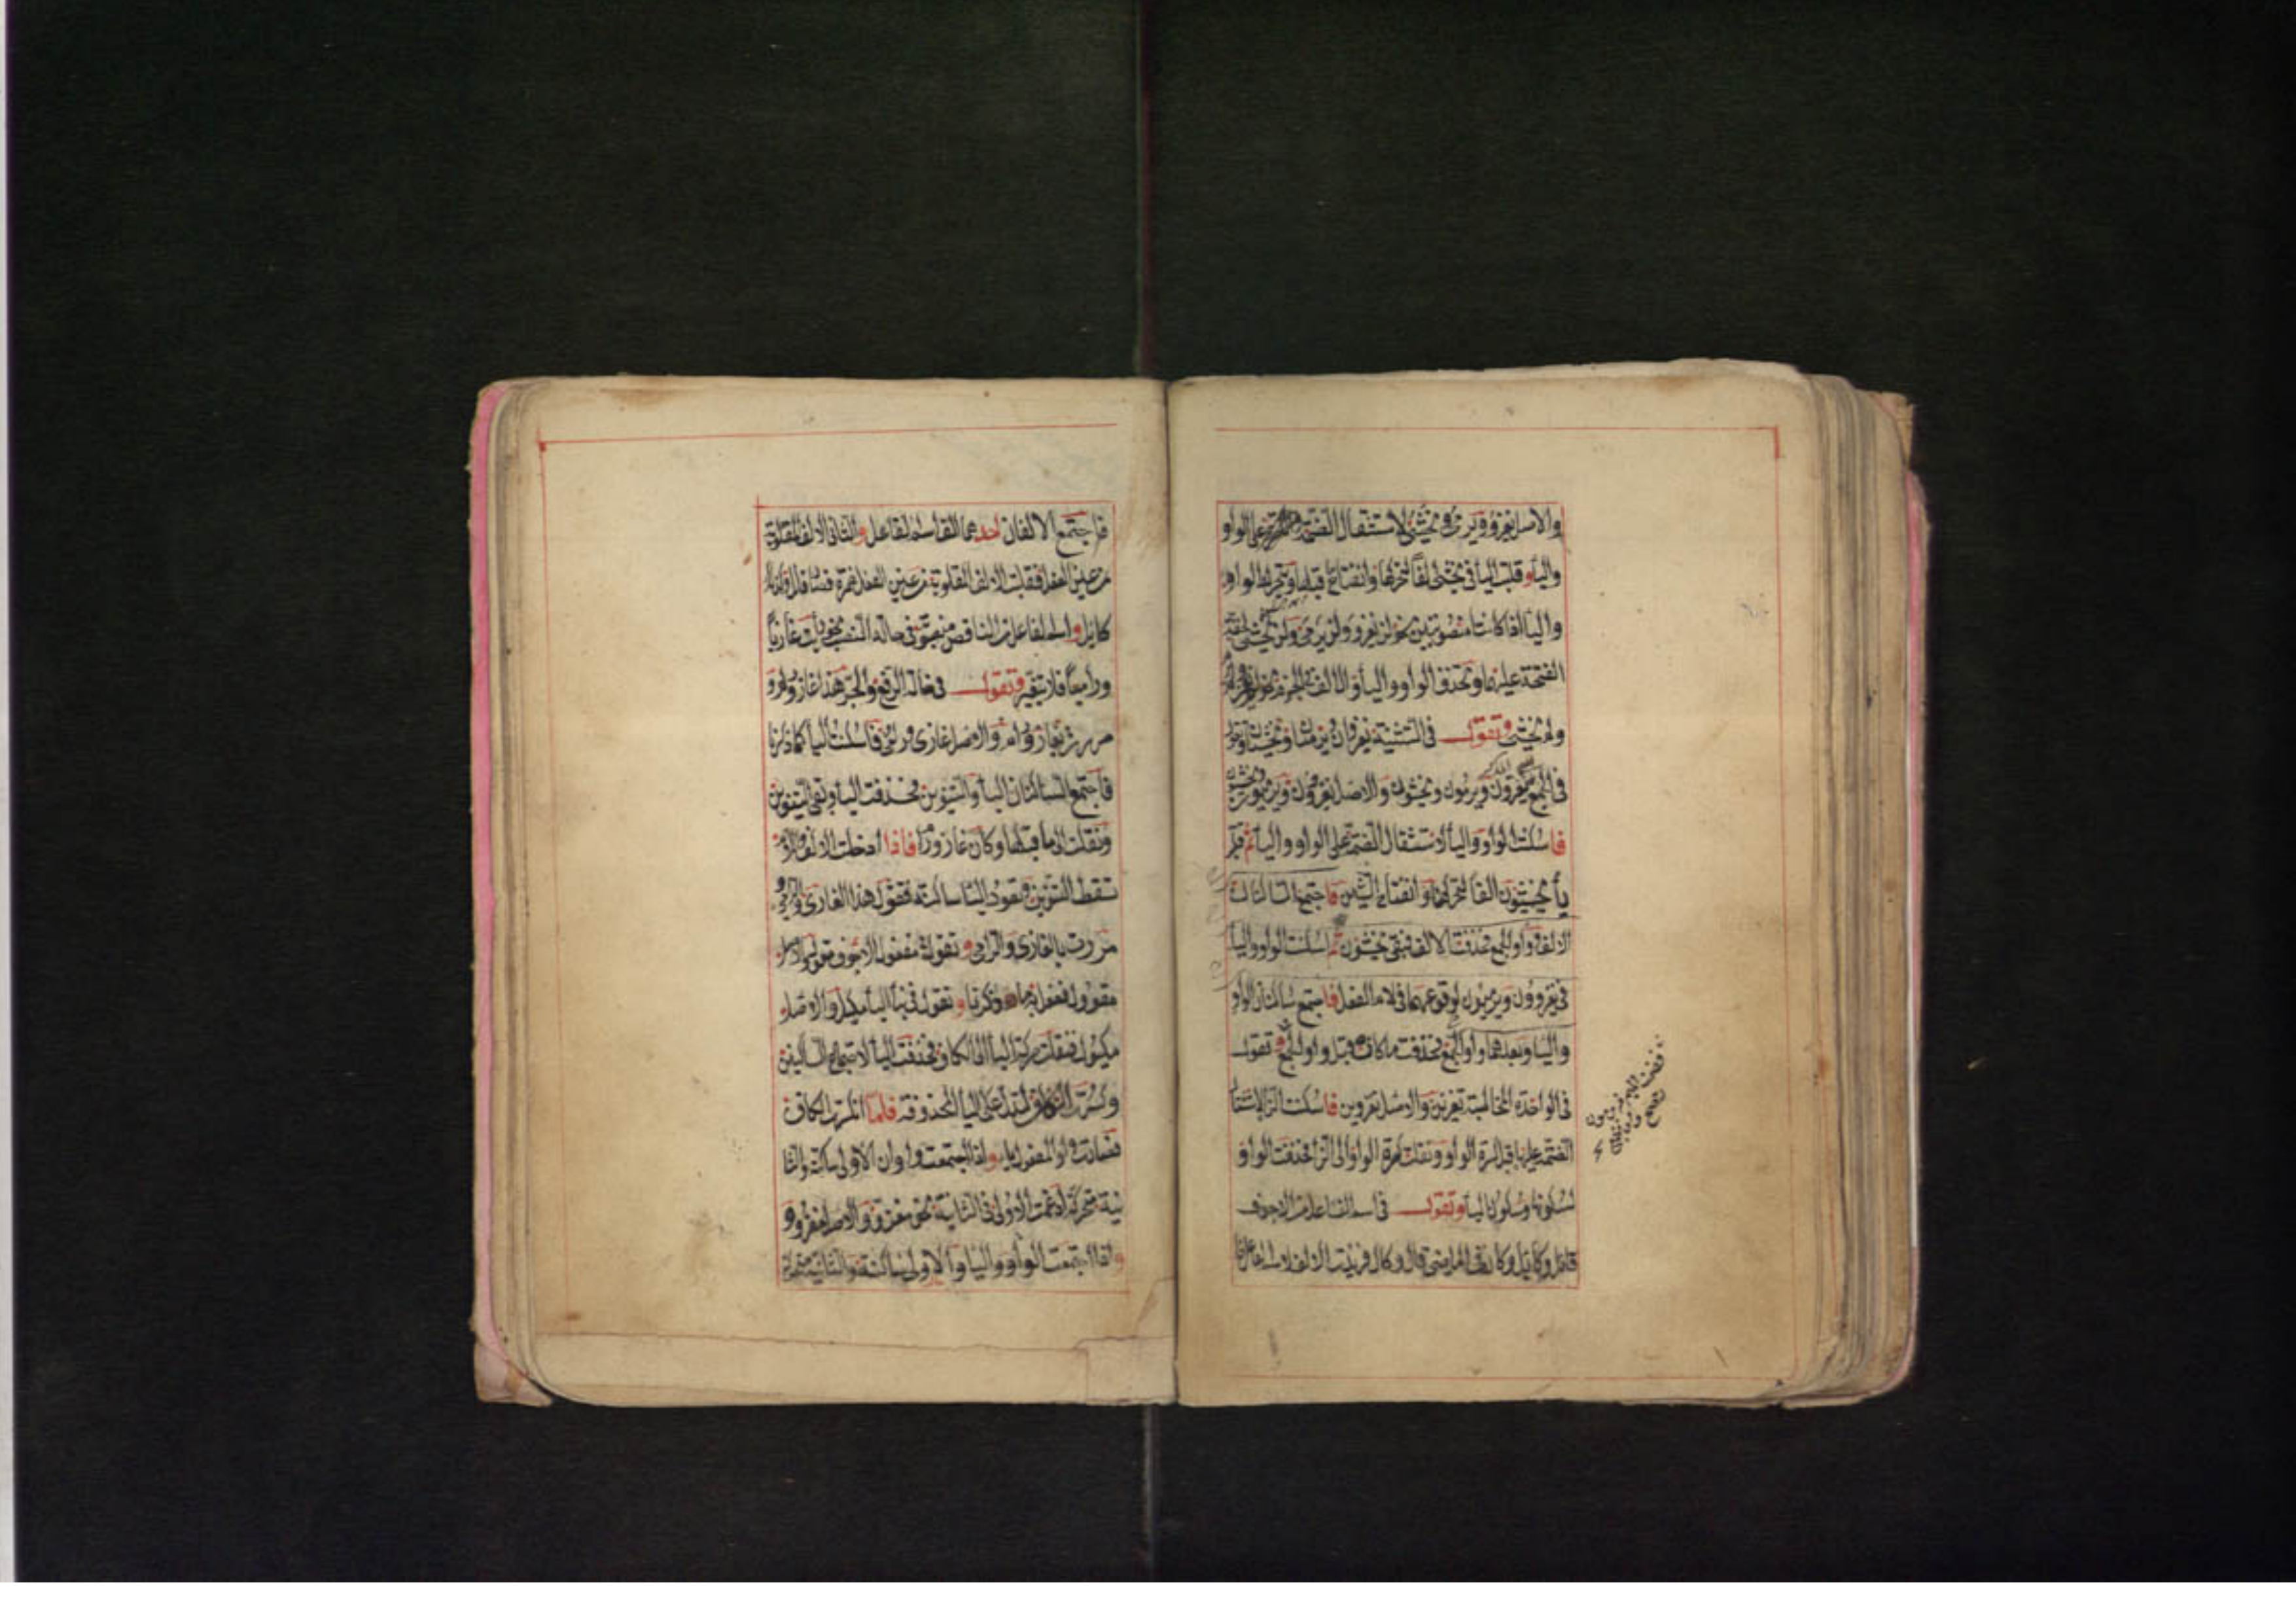 والاصل يغزو ويرمى ويخشى لاستثقال الضمة على الواو
واليأ وقلبت اليأ فى يخشى الفا لتحركها وانفتاح قبلها وتحرك الواو
واليأ اذا كانتا منصوبتين نحو لن يغزو ولن يرمى ولن يخشى لخفة
الفتحة عليهما وتحذف الواو واليأ والالف للجزم نحو لم يغز ولم يرم
ولم يخش وتقول فى التثنية يغزوان ويرميان ويخشيان وتقول
فى الجمع يغزون ويرمون ويخشون والاصل يغزوون ويرميون ويخشيون
فاسكنت الواو واليأ لاستثقال الضمة على الواو واليأ ثم قلبت
يأ يخشيون الفا لتحركها وانفتاح الشين فاجتمع الساكنان
الالف وواو الجمع فحذفت الالف فبقى يخشون ثم اسكنت الواو واليأ
فى يغزوون ويرميون لوقوعهما فى لام الفعل فاجتمع ساكنان الواو
واليأ وبعدهما واو الجمع فحذفت ما كان قبل واو الجمع وتقول
فى الواحدة المخاطبة تغزين والاصل تغزوين فاسكنت الزا لاستثقال
الضمة عليها قبل كسرة الواو ونقلت كسرة الواو الى الزا فحذفت الواو
لسكونها وسكون اليأ وتقول فى اسم الفاعل من الاجوف
قائل وكايل وكان فى الماضى قال وكال فزيدت الالف لاسم الفاعل
فاجتمع الالفان احدهما الف اسم الفاعل والثانى الالف المقلوبة
من عين الفعل فقلبت الالف المقلوبة من عين الفعل همزة فصار قائل وكذلك
كايل واسم الفاعل من الناقص منصوب فى حالة النصب نحو رأيت غازيا
وراميا فلا يتغير وتقول فى حالة الرفع والجر هذا غاز ورام و
مررت بغاز ورام والاصل غازى ورامى فاسكنت اليأ كما ذكرنا
فاجتمع الساكنان اليأ والتنوين فحذفت اليأ وبقى التنوين
ونقلت الى ما قبلها وكان غاز ورام فاذا ادخلت الالف واللام
تسقط التنوين وتعود اليأ ساكنة فتقول هذا الغازى والرامى و
مررت بالغازى والرامى وتقول فى مفعول الاجوف مقول والاصل
مقوول ففعل به ما ذكرنا وتقول فى بنأ اليأ مكيل والاصل
مكيول فنقلت حركة اليأ الى الكاف فحذفت اليأ لاجتماع الساكنين
وكسرت الكاف لتدل على اليأ المحذوفة فلما انكسرت الكاف
فصارت واو المفعول يأ واذا اجتمعت واوان الاولى ساكنة والثا
نية متحركة ادغمت الاولى فى الثانية نحو مغزو والاصل مغزوو
واذا اجتمعت الواو واليأ والاولى ساكنة والثانية متحركة